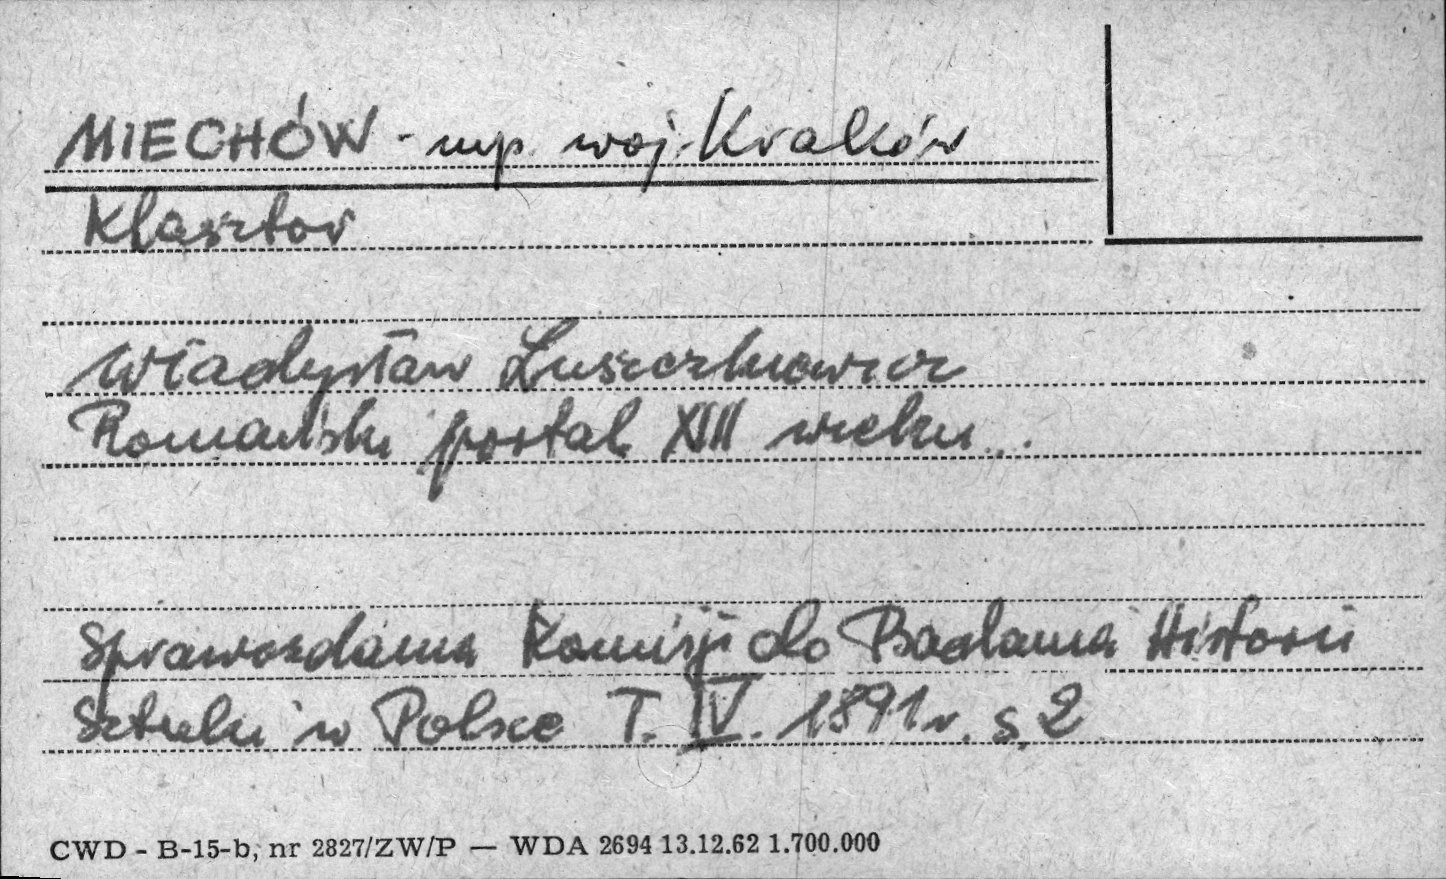 MIECHÓW - mp. woj. Kraków
Klasztor
Władysław Łuszczkiewicz
Romański portal XIII wieku...
Sprawozdania Komisji do Badania Historii
Sztuki w Polsce T. IV. 1891 r. s. 2
CWD - B-15-b, nr 2827/ZW/P — WDA 2694 13.12.62 1.700.000